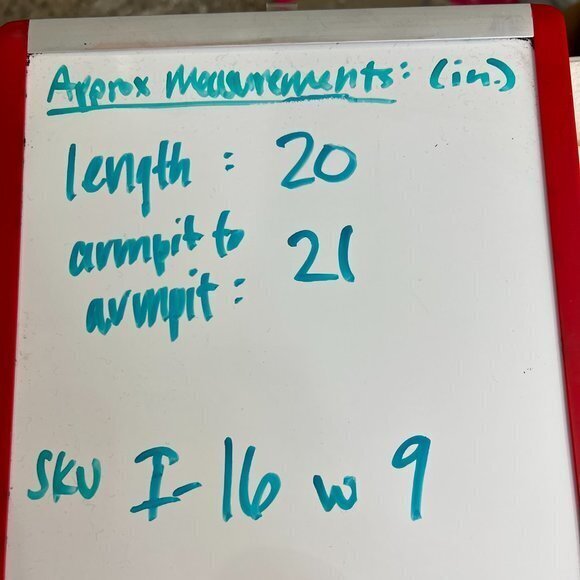 Approx Measurements: (in.)
length: 20
armpit to
armpit: 21
SKU I-16 w 9